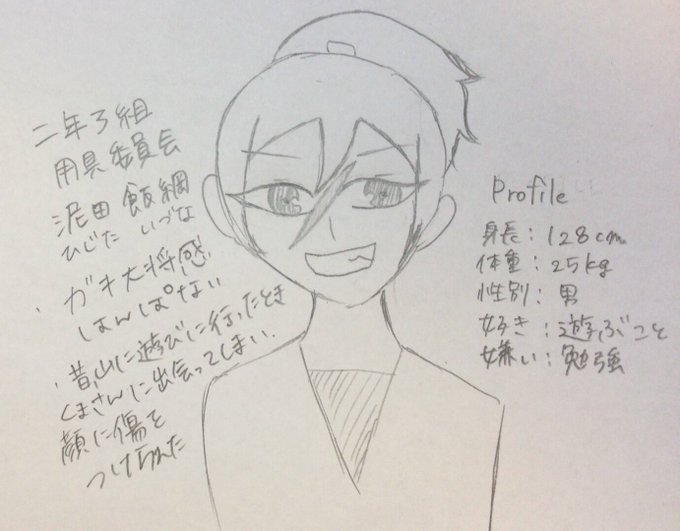 二年ろ組
用具委員会
泥田 飯綱
ひじた いづな
・ガキ大将感
はんぱない
・昔、山に遊びに行ったとき
くまさんに出会ってしまい、
顔に傷を
つけられた
Profile
身長：128cm
体重：25kg
性別：男
好き：遊ぶこと
嫌い：勉強